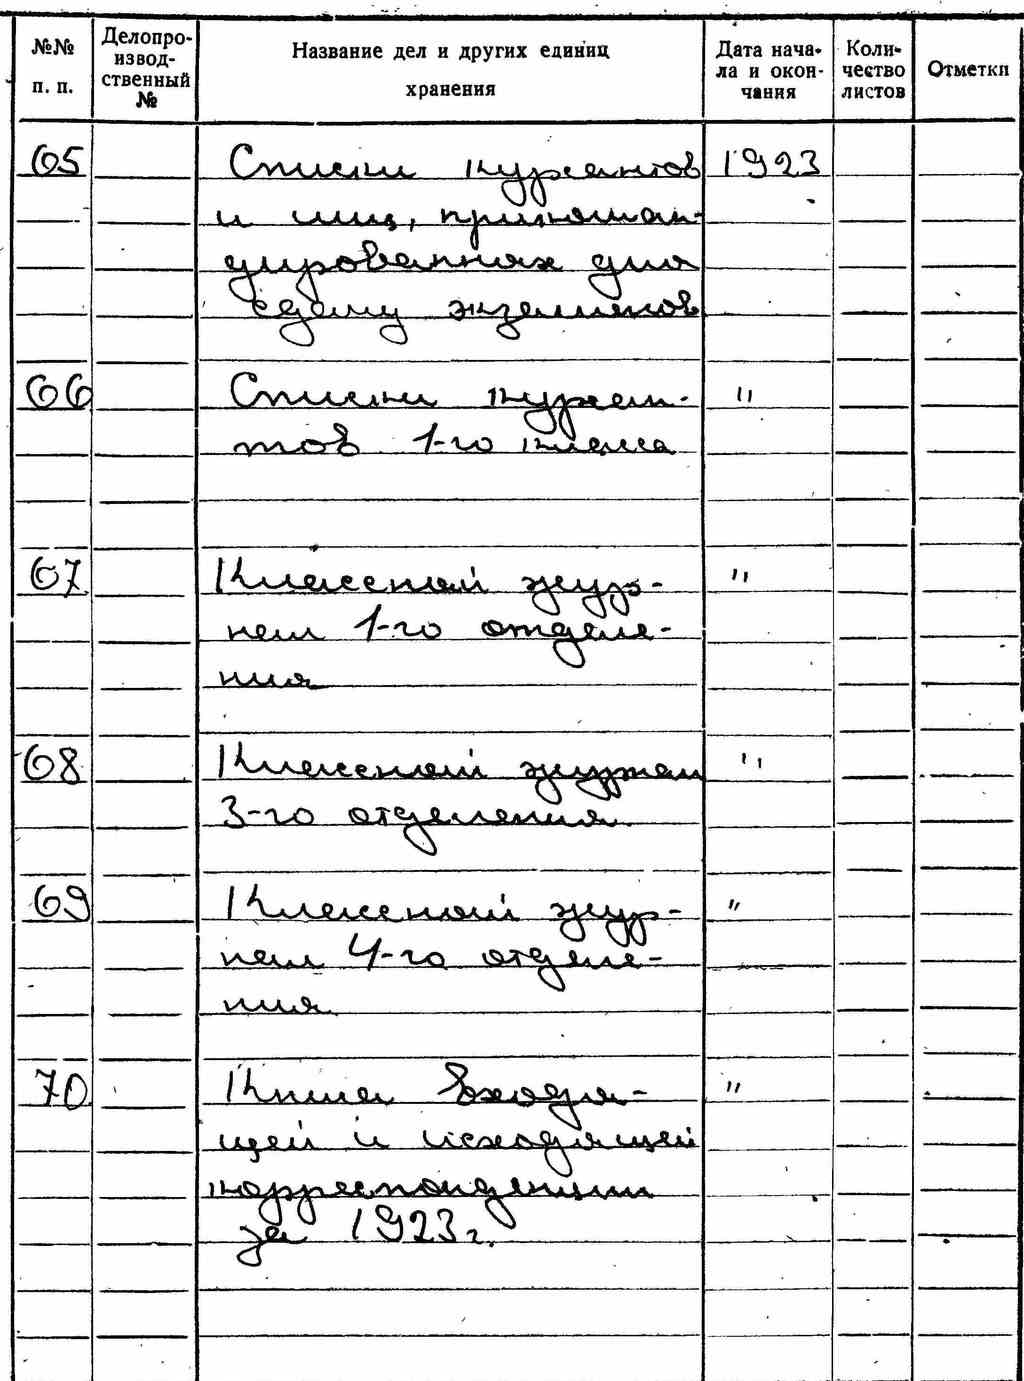 №№ п. п.
Делопро-
извод-
ственный
№
Название дел и других единиц
хранения
Дата нача-
ла и окон-
чания
Коли-
чество
листов
Отметки
65 Списки курсантов 1923
и лиц, прикоман-
дированных для
сдачи экзаменов
66 Списки курсан- "
тов 1-го класса
67 Классный жур- "
нал 1-го отделе-
ния
68 Классный журнал "
3-го отделения
69 Классный жур- "
нал 4-го отделе-
ния
70 Книга входя- "
щей и исходящей
корреспонденции
за 1923 г.